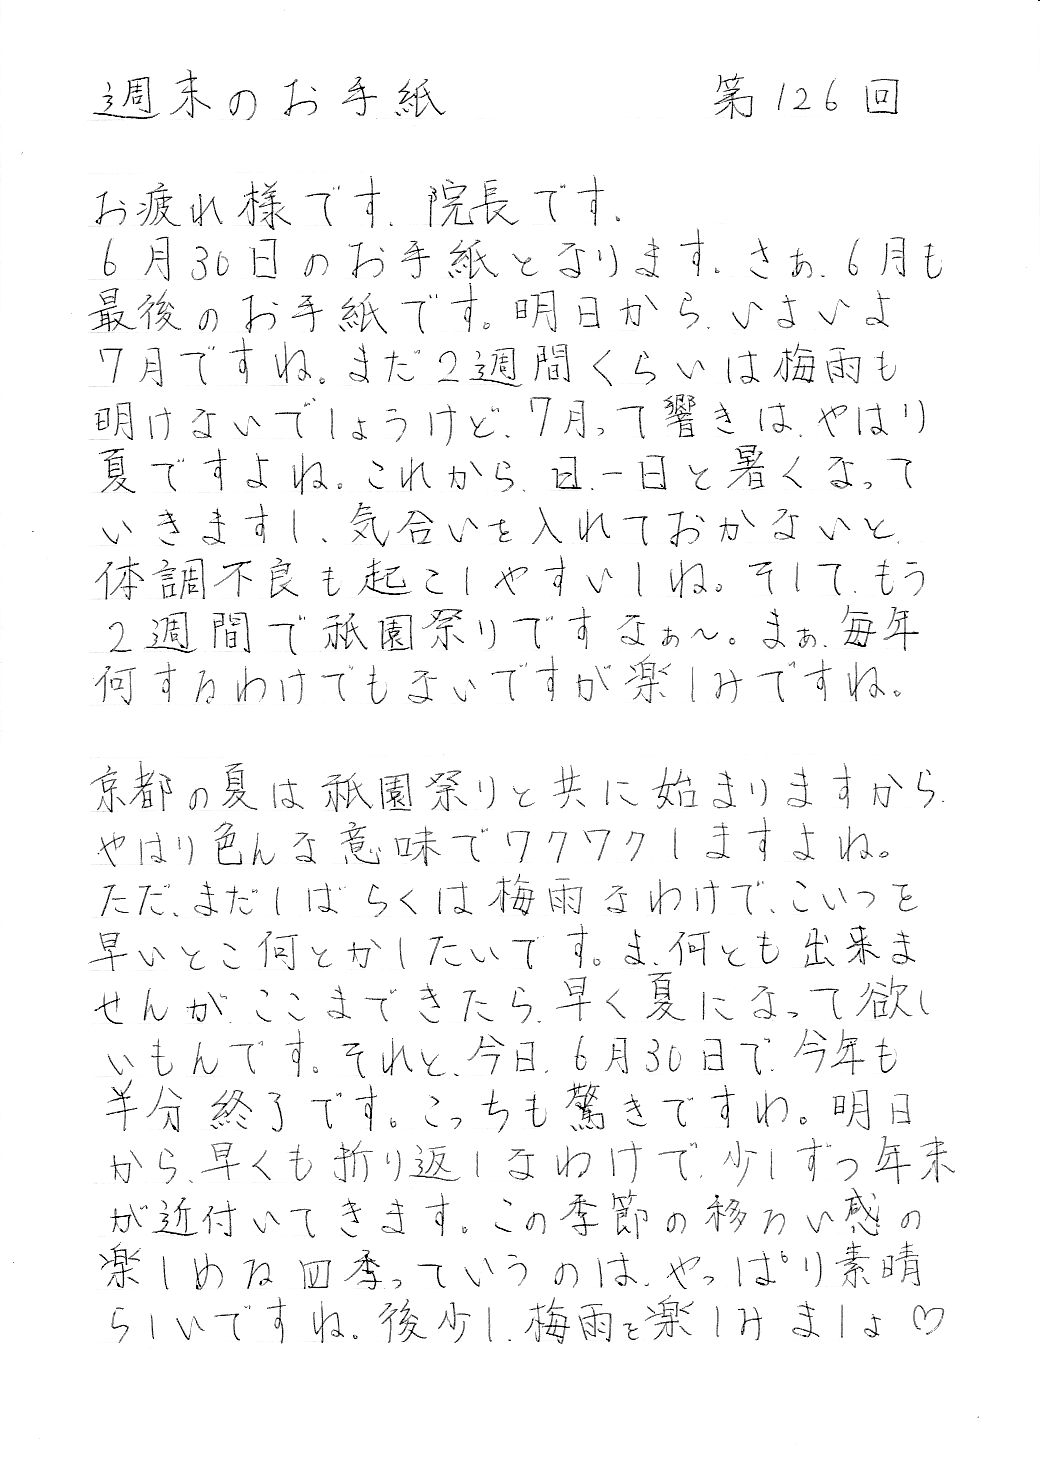 週末のお手紙 第126回
お疲れ様です、院長です、
6月30日のお手紙となります。さぁ、6月も
最後のお手紙です。明日から、いよいよ
7月ですね。まだ2週間くらいは梅雨も
明けないでしょうけど、7月って響きは、やはり
夏ですよね。これから、日一日と暑くなって
いきますし、気合いを入れておかないと、
体調不良も起こしやすいしね。そして、もう
2週間で祇園祭りですなぁ〜。まぁ、毎年
何するわけでもないですが楽しみですね。
京都の夏は祇園祭りと共に始まりますから、
やはり色んな意味でワクワクしますよね。
ただ、まだしばらくは梅雨なわけで、こいつを
早いとこ何とかしたいです。ま、何とも出来ま
せんが、ここまできたら、早く夏になって欲し
いもんです。それと、今日、6月30日で、今年も
半分終了です。こっちも驚きですわ。明日
から、早くも折り返しなわけで、少しずつ年末
が近付いてきます。この季節の移ろい感の
楽しめる四季っていうのは、やっぱり素晴
らしいですね。後少し、梅雨を楽しみましょ♡